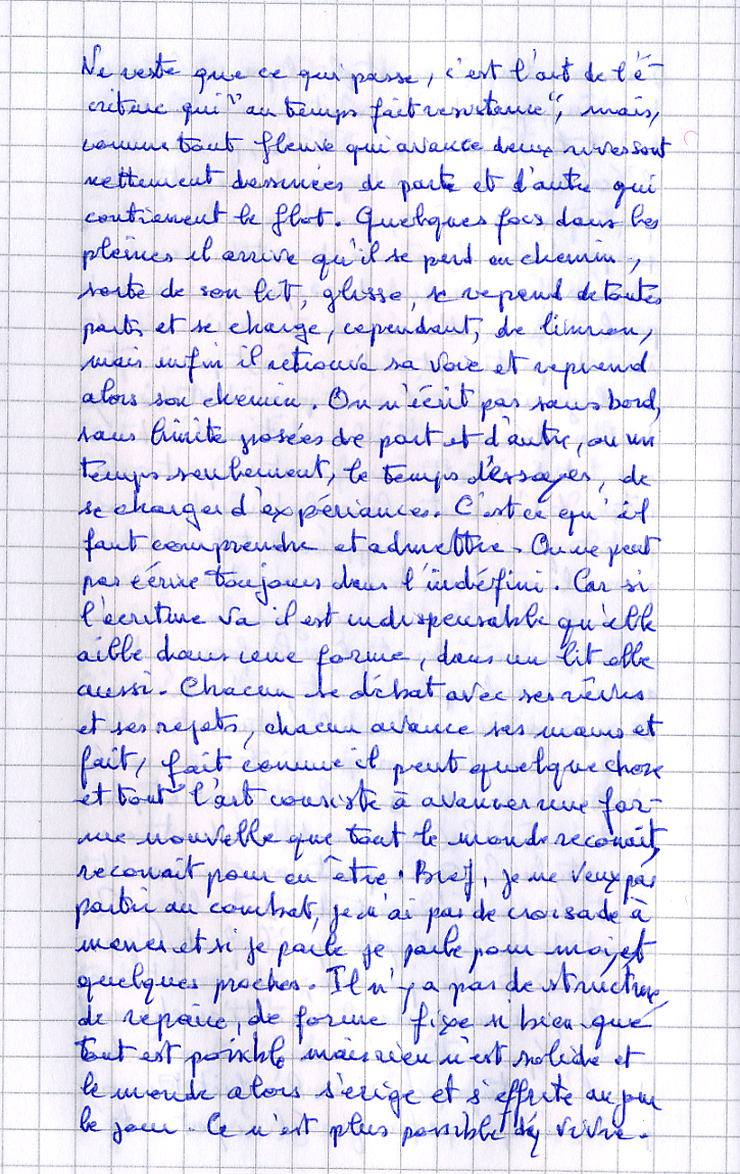 Ne reste que ce qui passe, c'est l'art de l'é-
criture qui "au temps fait resistance", mais,
comme tout fleuve qui avance deux rives sont
nettement dessinées de parte et d'autre qui
contiennent le flot. Quelques fois dans les
pleines il arrive qu'il se perd en chemin,
sorte de son lit, glisse, se repend de toutes
parts et se charge, cependant, de limon,
mais enfin il retrouve sa voie et reprend
alors son chemin. On n'écrit pas sans bord,
sans limite posées de part et d'autre, ou un
temps seulement, le temps d'essayer, de
se charger d'expériances. C'est ce qu'il
faut comprendre et admettre. On ne peut
pas écrire toujours dans l'indéfini. Car si
l'écriture va il est indispensable qu'elle
aille dans une forme, dans un lit elle
aussi. Chacun se débat avec ses rêves
et ses rejets, chacun avance ses mains et
fait, fait comme il peut quelque chose
et tout l'art consiste à avancer une for-
me nouvelle que tout le monde reconait,
reconait pour en être. Bref, je ne veux pas
partir au combat, je n'ai pas de croisade à
mener et si je parle je parle pour moi et
quelques proches. Il n'y a pas de structure,
de repaire, de forme fixe si bien que
tout est possible mais rien n'est solide et
le monde alors s'érige et s'effrite au jour
le jour. Ce n'est plus possible d'y vivre.